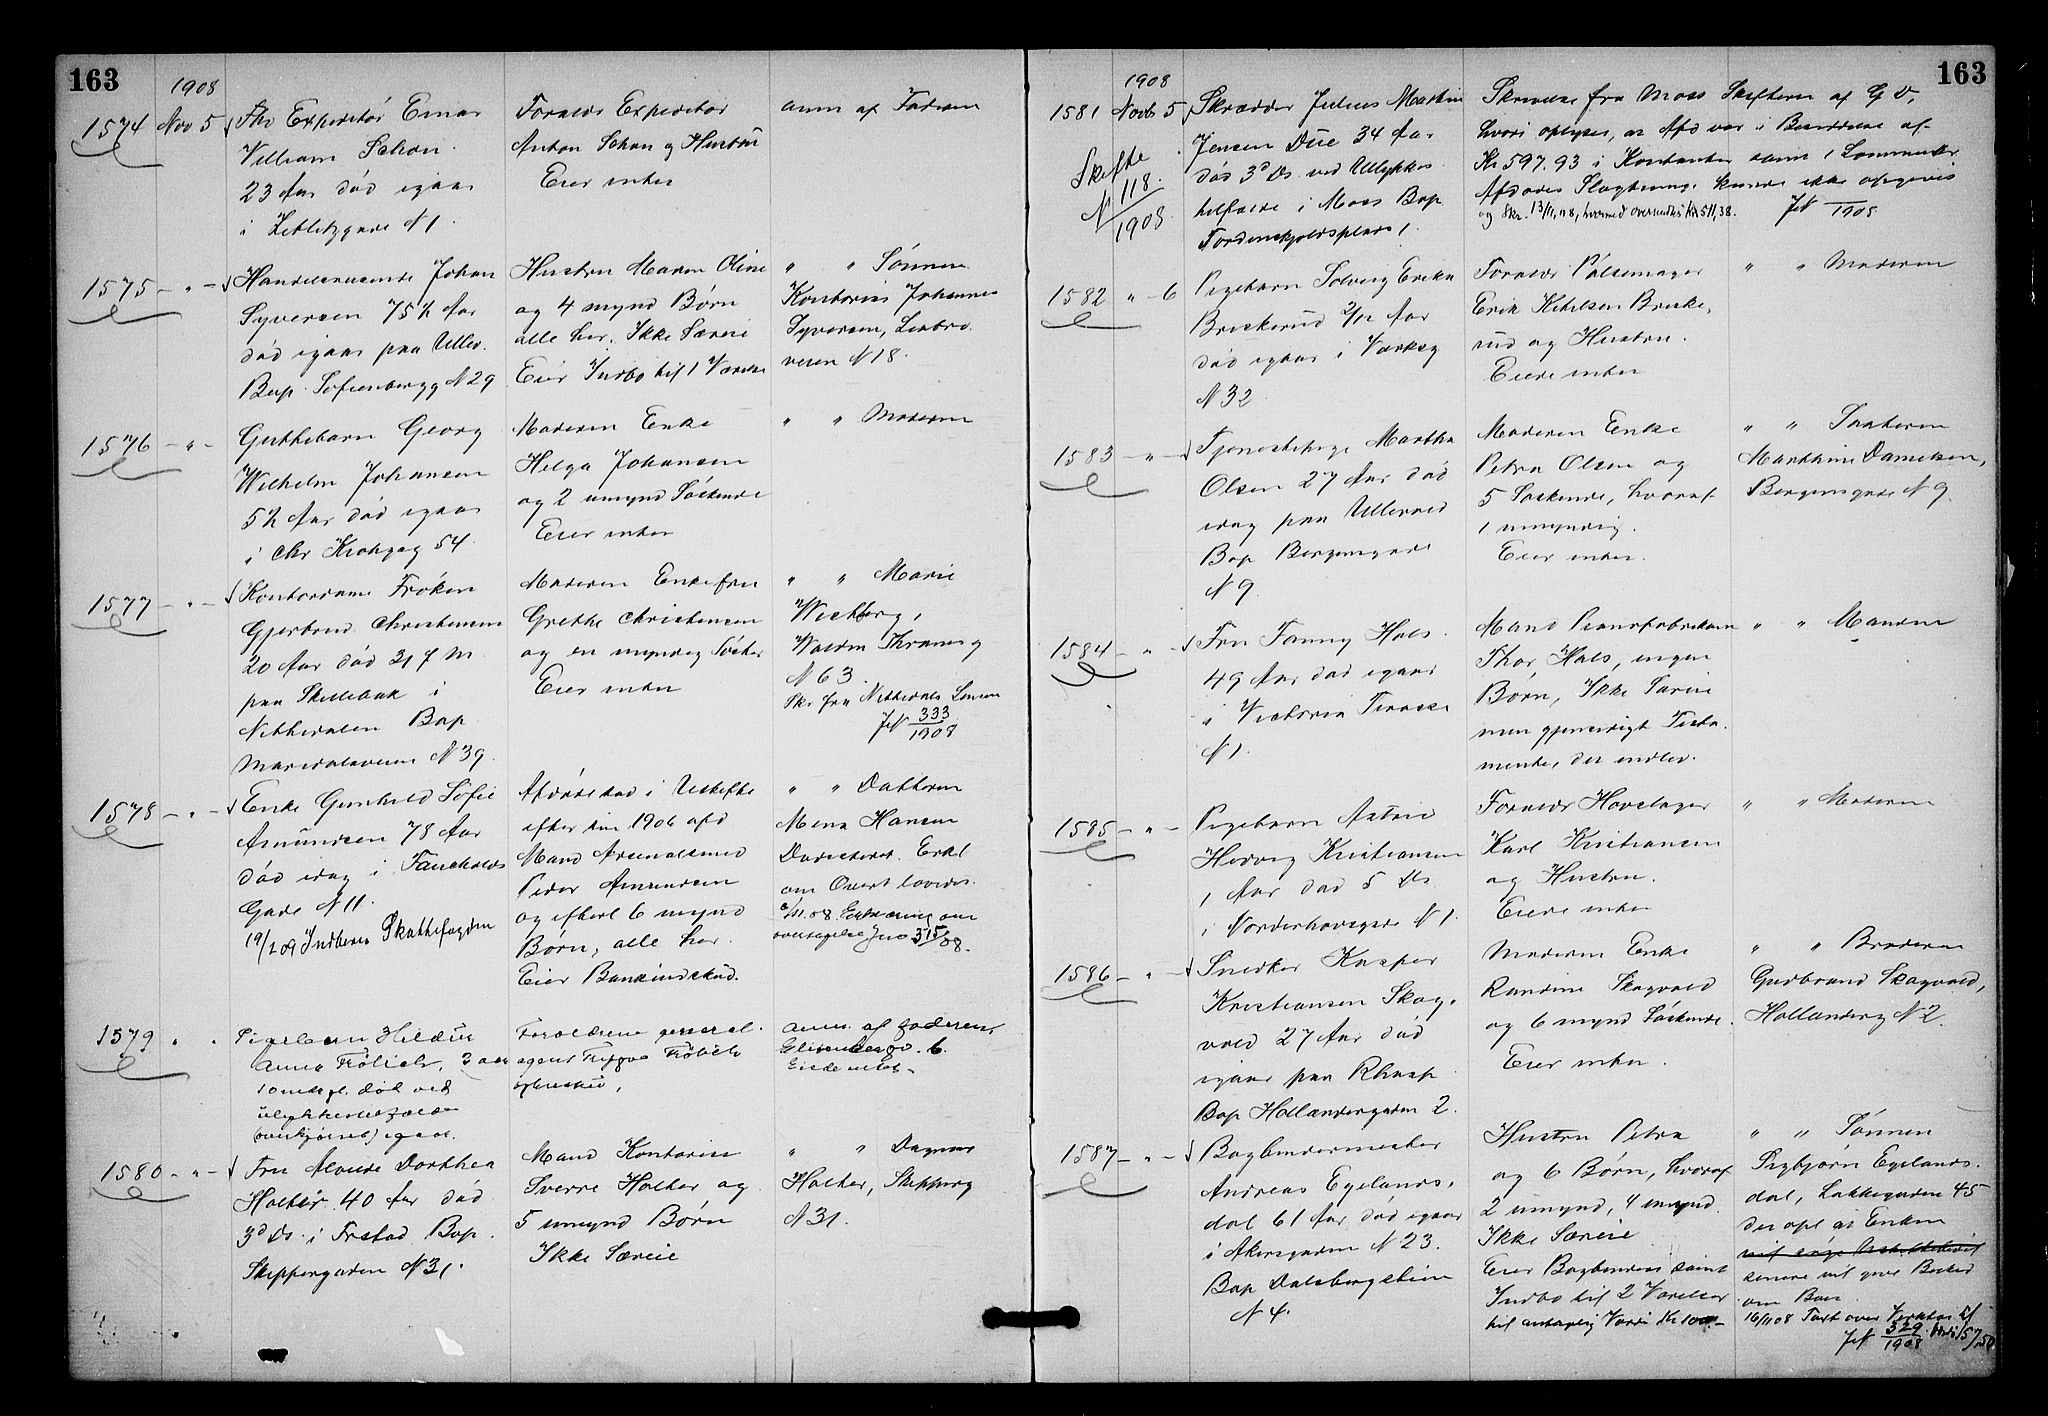 163
1908
1574 Nov 5 Fhv Expeditør Einar
William Schou
23 Aar død igaar
i Zetlitzgade N 1.
Forældr Expeditør
Anton Schou og Hustru
Eier intet
anm af Faderen
1575 - " - Handelsreisende Johan
Syversen 75 1/2 Aar
død igaar paa Ullev.
Bop. Sofienbergg N 29
Hustru Maren Oline
og 4 mynd Børn
alle her. Ikke Særeie
Eier Indbo til 1 Værelse
" " Sønnen
Kontorist Johannes
Syversen,
veien N 18.
1576 - " - Guttebarn Georg
Wilhelm Johansen
5 1/2 Aar død igaar
i Chr Krohgsg 54.
Moderen Enke
Helga Johansen
og 2 umynd Søskende
Eier intet
" " Moderen
1577 - " - Kontordame Frøken
Gjerbrud Christensen
20 Aar død 31 f M
paa Skillebæk i
Nittedalen Bop
Maridalsveien N 39.
Moderen Enkefru
Grethe Christensen
og en myndig Søster
Eier intet
" " Marie
Wichberg,
Waldm Thranesg
N 63.
Skr fra Nittedals Lensm
JN 333/1908
1578 - " - Enke Gunhild Sofie
Amundsen 78 Aar
død idag i Fauchalds
Gade N 11.
19/2 09 Indberes Skattefogden
Afdøde sad i Uskifte
efter sin 1906 afd
Mand Arsenalsmed
Peder Amundsen
og efterl 6 mynd
Børn, alle her.
Eier Bankindskud.
" " Datteren
Mena Hansen
Erkl
om Overt lovedes.
/11.08. Erklæring om
overtagelse Jno 315/08.
1579 " " Pigebarn Hildur
Anna Frölich, 3 aar
10 mdr gl. død ved
ulykkestilfælde
(overkjørsel) igaar.
Forældrene general-
agent Trygve Frölich
og hustru,
Anm. af faderen,
Gl. 6.
Eiede intet -
1580 - " - Fru Alvilde Dorthea
Holter 40 Aar død
3d Ds. i Frstad Bop.
Skippergaden N 31.
Mand Kontorist
Sverre Holter og
5 umynd Børn
Ikke Særeie
" " Dagmar
Holter, Skipperg
N 31.
163
1908
1581 Novb 5 Skrædder Julius Martin
Jensen Due 34 Aar
død 3d Ds. ved Ulykkes
tilfælde i Moss Bop
Tordenskjoldsplads 1
Skifte
N 118/1908
Skrivelse fra Moss Skifteret af G D,
hvori oplyses, at Afd var i Besiddelse af
Kr 597.93 i Kontanter samt 1 Lommeuhr
Afdødes Slægtninge kunde ikke opgives
og Skr. 13/11, 08, hvormed oversendtes Kr 511,38. JN /1908
1582 " - 6 Pigebarn Solveig Erika
Breskerud 2/12 Aar
død igaar i Værksg
N 32
Forældr Pølsemager
Erik Ketilsen Breske-
rud og Hustru.
Eiede intet
" " Moderen
1583 - " - Tjenestepige Martha
Olsen 27 Aar død
idag paa Ullevaal
Bop Bergensgade
N 9.
Moderen Enke
Petra Olsen og
5 Søskende, hvoraf
1 umyndig.
Eier intet.
" " Søsteren
Marthine Danielsen,
Bergensgade N 9.
1584 - " - Fru Fanny Hals
49 Aar død igaar
i Victoria Terasse
N 1.
Mand Pianofabrikant
Thor Hals, ingen
Børn, Ikke Særeie
men gjensidigt Testa-
mente, der indlev.
" " Manden
1585 - " - Pigebarn Astrid
Hedvig Kristiansen
1 Aar død 5 Ds
i Norderhovsgade N 1.
Forældr Hovslager
Karl Kristiansen
og Hustru.
Eiede intet
" " Moderen
1586 - " - Snedker Kasper
Kristiansen Skog-
vold 27 Aar død
igaar paa Rhosp
Bop Hollændergaden 2.
Moderen Enke
Randine Skogvold
og 6 mynd Søskende.
Eier intet.
" " Broderen
Gudbrand Skogvold,
Hollænderg N 2.
1587 - " - Bogbindermester
Andreas Egelands-
dal 61 Aar død igaar
i Akersgaden N 23.
Bop Dalsbergstien
N 4.
Hustru Petra
og 6 Børn, hvoraf
2 umynd, 4 mynd.
Ikke Særeie
Eier Bogbinderi samt
Indbo til 2 Værelser
til antagelig Værdi Kr 1000.-
" " Sønnen
Sigbjørn Egelands-
dal, Lakkegaden 45
der opl at Enken
senere vil give Besked
om Boet
16/11 08 Taxt over
JN 329/1908